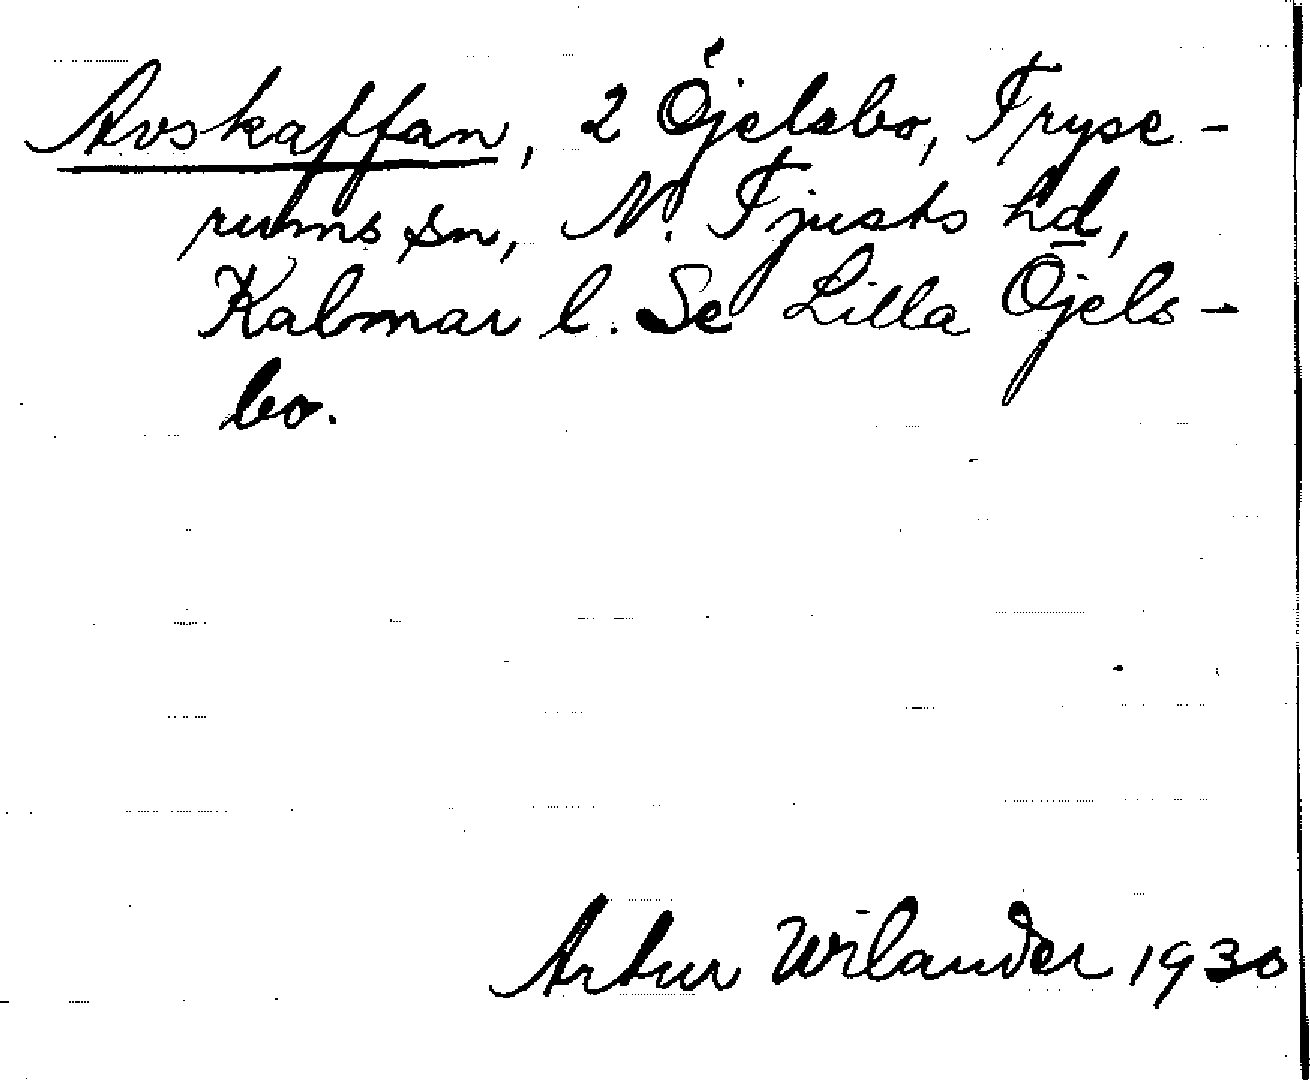 Avskaffan, 2 Öjelsbo, Tryse-
rums sn, N. Tjusts hd,
Kalmar l. Se Lilla Öjels-
bo.
Artur Wilander 1930